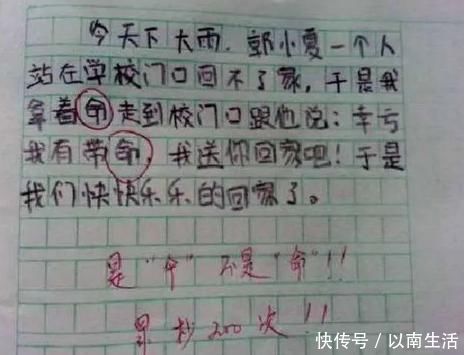 今天下大雨，郭小夏一个人
站在学校门口回不了家，于是我
拿着命走到校门口跟他说：幸亏
我有带命，我送你回家吧！于是
我们快快乐乐的回家了。
是“伞”不是“命”!!
罚抄200次!!
快传号 / 以南生活